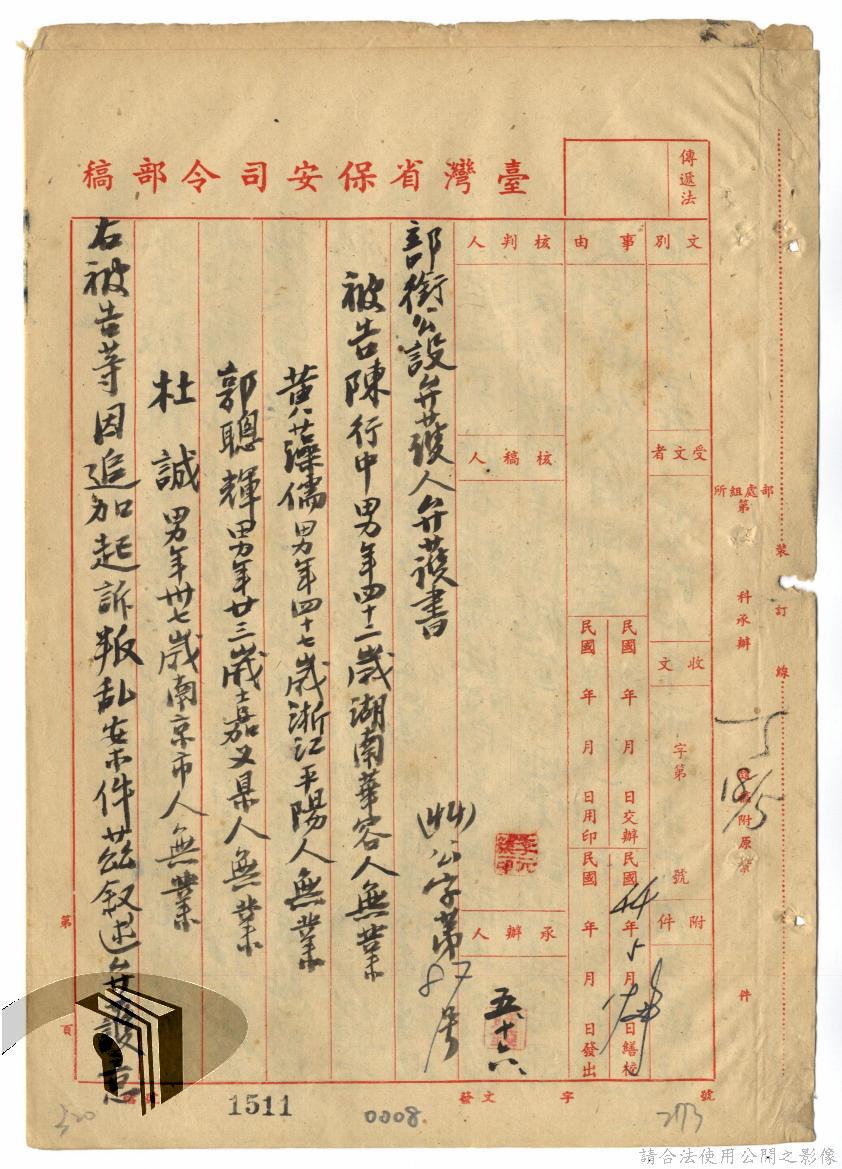 臺灣省保安司令部稿
傳遞法
文別
受文者
收文 字第 號
附件
事由
民國 年 月 日交辦
民國44年5月 日繕校
民國 年 月 日用印
民國 年 月 日發出
核判人
核稿人
承辦人
五、十六、
部銜公設弁護人弁護書
(44)公字第87号
被告陳行中男年四十二歲湖南華容人無業
黃藻儒男年四十七歲浙江平陽人無業
郭聰輝男年廿三歲嘉义県人無業
杜 誠男年卅七歲南京市人無業
右被告等因追加起訴叛乱案件茲叙述弁護意
部處組所
第 科承辦
附原案 件
裝訂線
18/5
第 頁
發文 字 號
1511
0008
273
請合法使用公開之影像